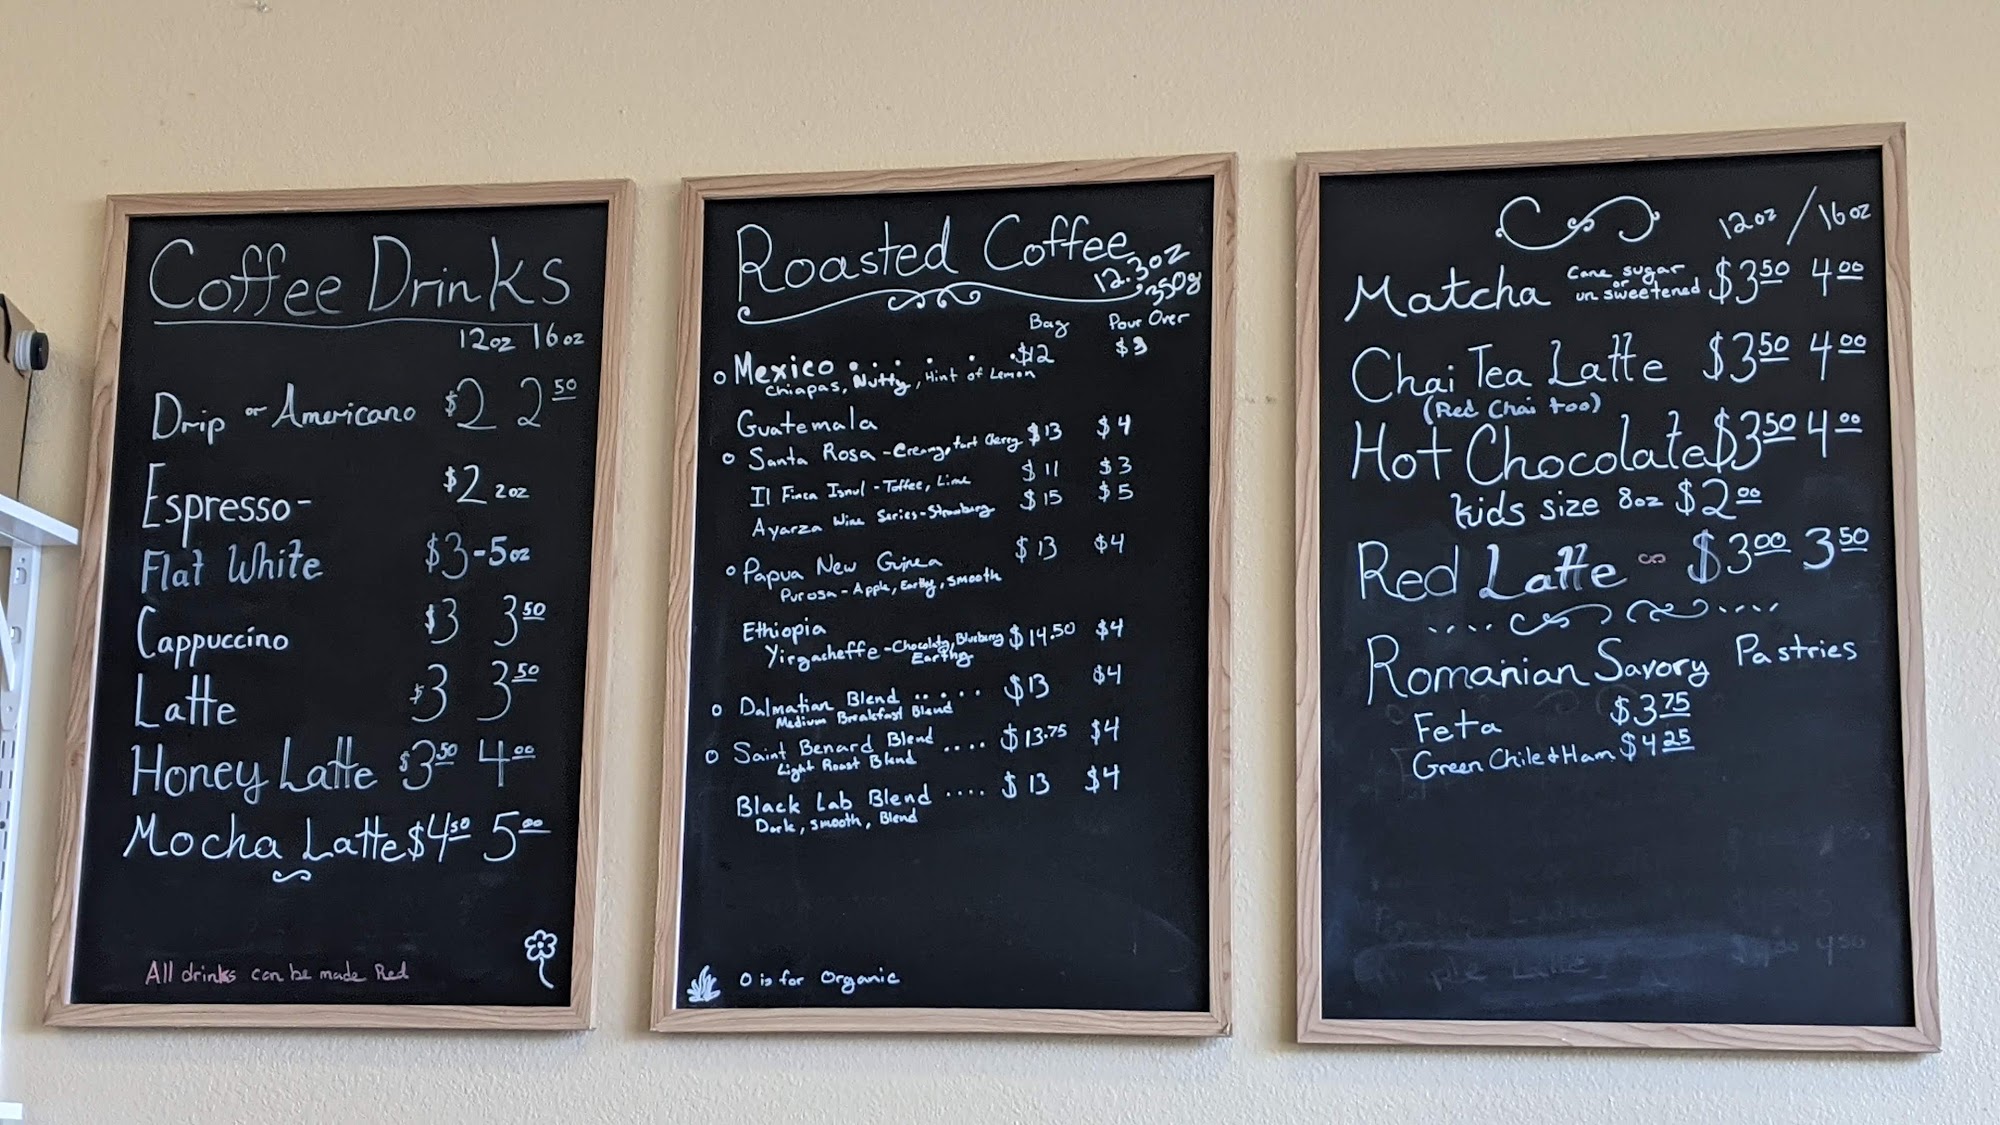 Coffee Drinks
12oz 16oz
Drip or Americano $2 2 50
Espresso- $2 2oz
Flat White $3-5oz
Cappuccino $3 3 50
Latte $3 3 50
Honey Latte $3 50 4 00
Mocha Latte $4 50 5 00
All drinks can be made Red
Roasted Coffee
12.3oz
350g
Bag Pour Over
o Mexico ...... $12 $3
Chiapas, Nutty, Hint of Lemon
Guatemala
o Santa Rosa - Creamy, tart Cherry $13 $4
Il Finca Isnul - Toffee, Lime $11 $3
Ayarza Wine Series - Strawberry $15 $5
o Papua New Guinea $13 $4
Purosa - Apple, Earthy, smooth
Ethiopia
Yirgacheffe - Chocolaty, Blueberry $14.50 $4
Earthy
o Dalmatian Blend ..... $13 $4
Medium Breakfast Blend
o Saint Benard Blend .... $13.75 $4
Light Roast Blend
Black Lab Blend .... $13 $4
Dark, smooth, Blend
O is for Organic
12oz / 16oz
Matcha cane sugar or unsweetened $3 50 4 00
Chai Tea Latte $3 50 4 00
(Red Chai too)
Hot Chocolate $3 50 4 00
kids size 8oz $2 00
Red Latte $3 00 3 50
Romanian Savory Pastries
Feta $3 75
Green Chile & Ham $4 25